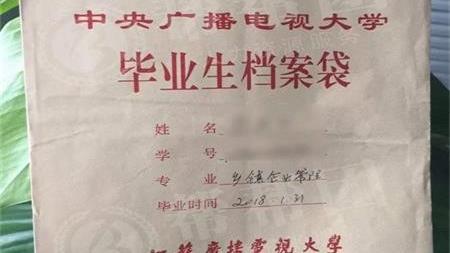 中央广播电视大学
毕业生档案袋
姓名
学号
专业 乡镇企业管理
毕业时间 2018.1.31
江苏广播電視大學